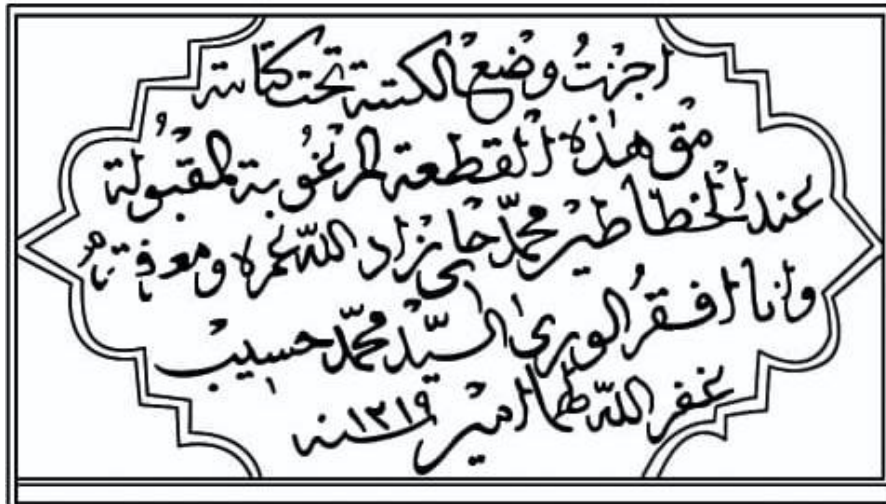 اجزتُ وضع الكتبة تحت كتابة
منمق هذه القطعة المرغوبة المقبولة
عند الخطاطين محمّد زاد اللّه عمره ومعرفته
وانا افقرُ الورى السيّد محمّد حسيب
غفر اللّه لهما امين سنه ١٣١٩